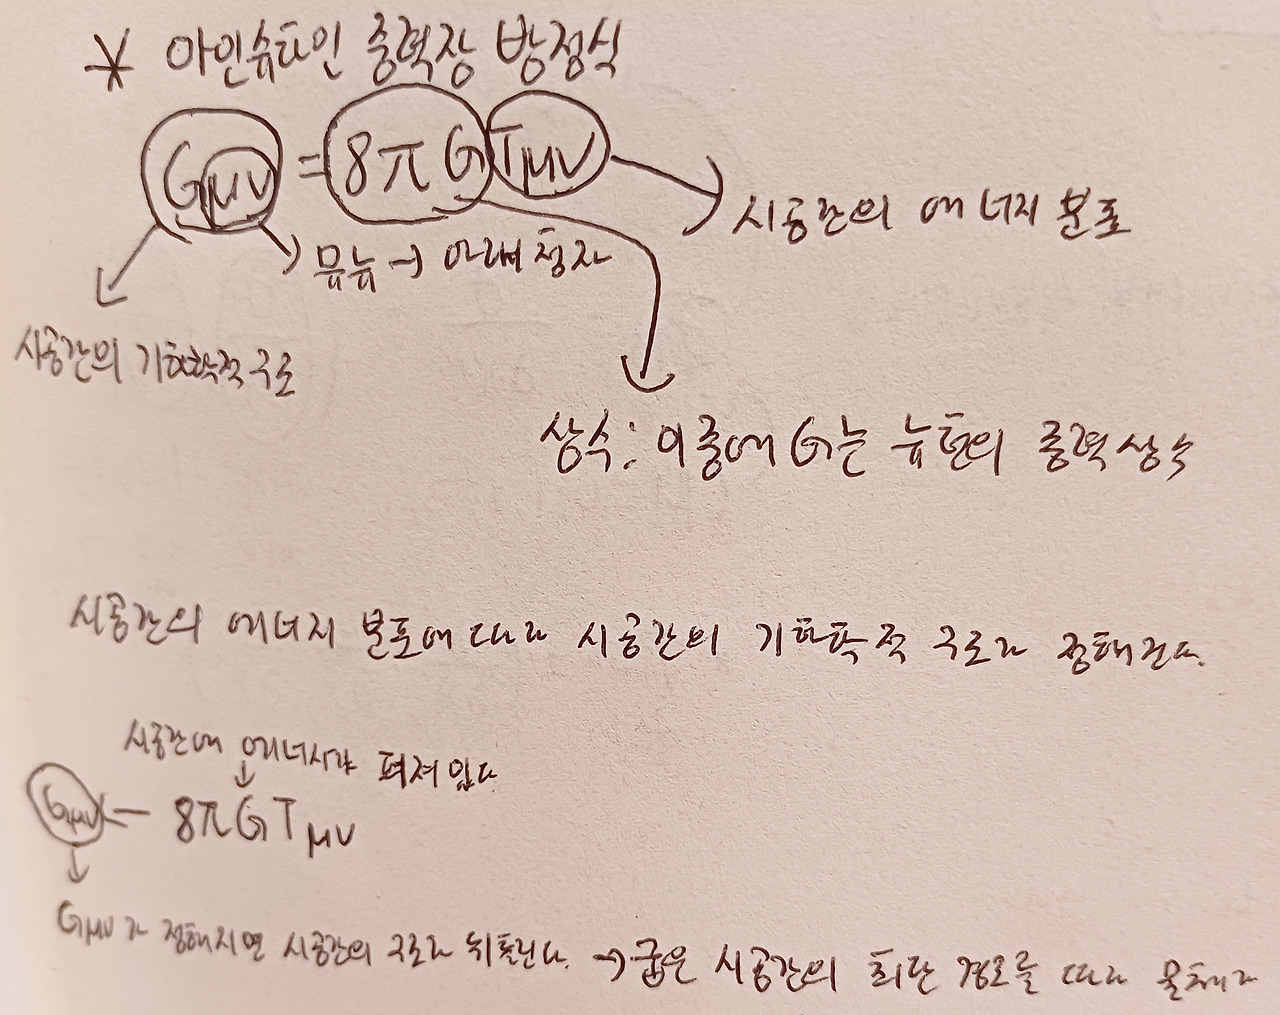 * 아인슈타인 중력장 방정식
Gμν = 8πG Tμν
시공간의 에너지 분포
뮤뉴 → 아래첨자
시공간의 기하학적 구조
상수: 이중에 G는 뉴턴의 중력상수
시공간의 에너지 분포에 따라 시공간의 기하학적 구조가 정해진다.
시공간에 에너지가 펴져있다
Gμν ← 8πGTμν
Gμν가 정해지면 시공간의 구조가 뒤틀린다. → 굽은 시공간의 최단 경로를 따라 물체가